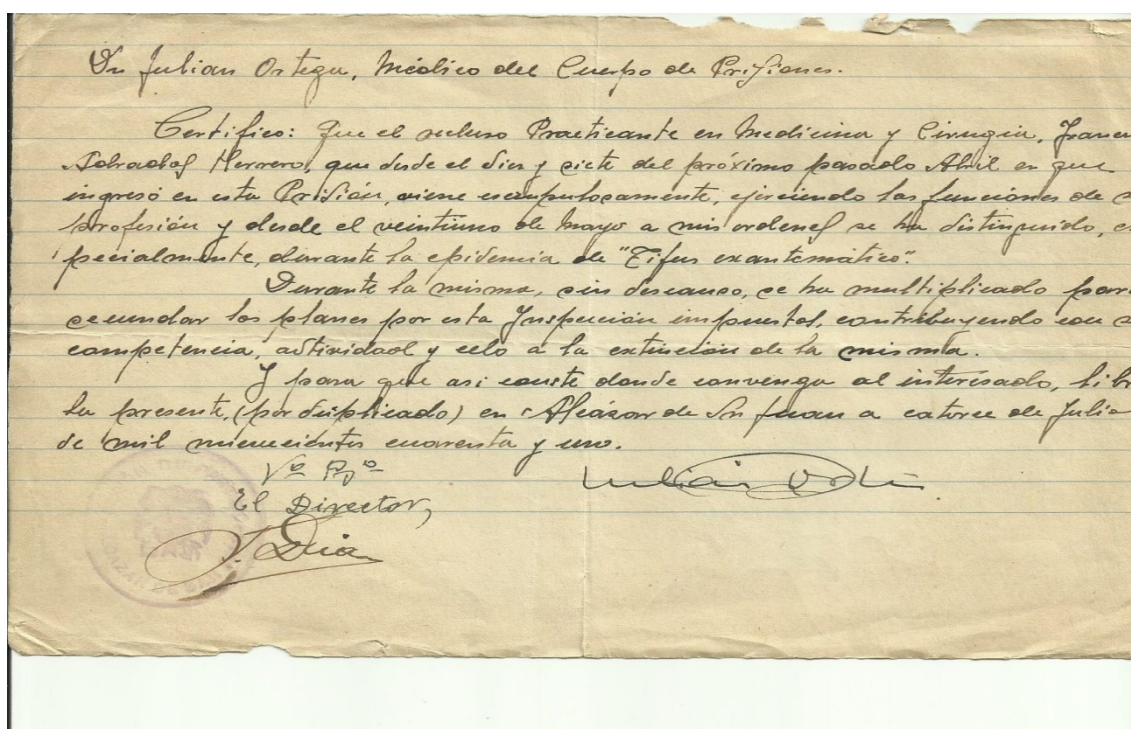 Dn Julian Ortega, Médico del Cuerpo de Prisiones.
Certifico: Que el recluso Practicante en Medicina y Cirugia,
Herrero, que desde el diez y siete del próximo pasado Abril en que
ingresó en esta Prisión, viene escrupulosamente, ejerciendo las funciones de
profesión y desde el veintiuno de Mayo a mis ordenes se ha distinguido, es
pecialmente, durante la epidemia de "Tifus exantemático".
Durante la misma, sin descanso, se ha multiplicado para
secundar los planes por esta Inspección impuestos, contribuyendo con
competencia, actividad y celo a la extinción de la misma.
Y para que asi conste donde convenga al interesado, libr
la presente, (por duplicado) en Alcázar de Sn Juan a catorce de Julio
de mil novecientos cuarenta y uno.
Vº Bº
El Director,
Julián Ortega